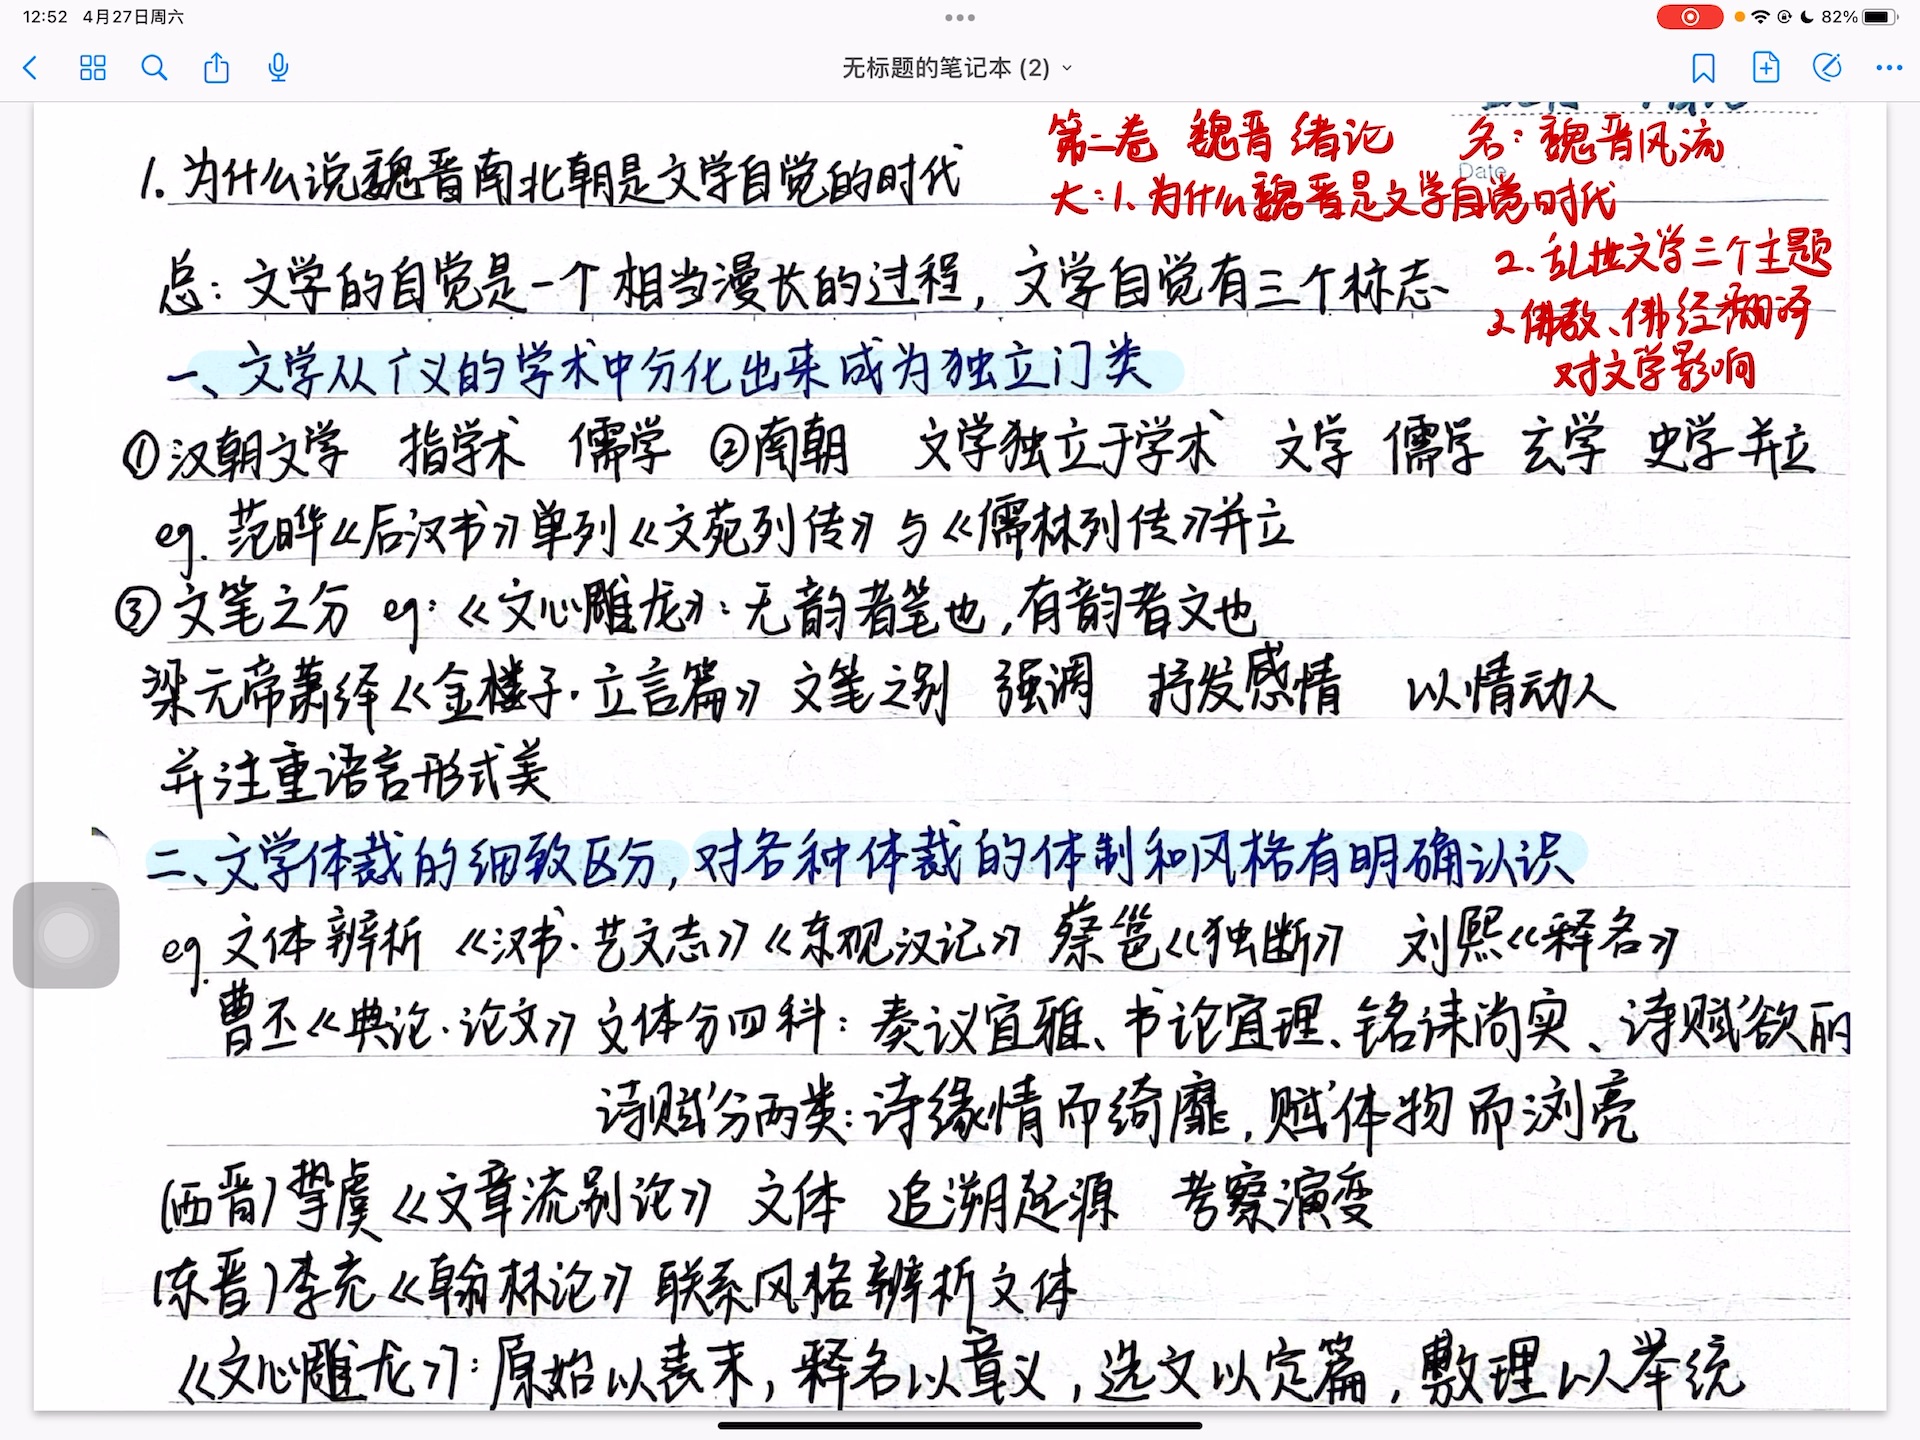 12:52 4月27日周六
82%
无标题的笔记本 (2)
第二卷 魏晋 绪论 名：魏晋风流
Date
大：1.为什么魏晋是文学自觉时代
2.乱世文学三个主题
2.佛教、佛经翻译
对文学影响
1.为什么说魏晋南北朝是文学自觉的时代
总：文学的自觉是一个相当漫长的过程，文学自觉有三个标志
一、文学从广义的学术中分化出来成为独立门类
①汉朝文学 指学术 儒学 ②南朝 文学独立于学术 文学 儒学 玄学 史学并立
eg.范晔《后汉书》单列《文苑列传》与《儒林列传》并立
③文笔之分 eg：《文心雕龙》：无韵者笔也，有韵者文也
梁元帝萧绎《金楼子·立言篇》文笔之别 强调 抒发感情 以情动人
并注重语言形式美
二、文学体裁的细致区分，对各种体裁的体制和风格有明确认识
eg.文体辨析《汉书·艺文志》《东观汉记》蔡邕《独断》 刘熙《释名》
曹丕《典论·论文》文体分四科：奏议宜雅、书论宜理、铭诔尚实、诗赋欲丽
诗赋分两类：诗缘情而绮靡，赋体物而浏亮
(西晋)挚虞《文章流别论》 文体 追溯起源 考察演变
(东晋)李充《翰林论》联系风格辨析文体
《文心雕龙》：原始以表末，释名以章义，选文以定篇，敷理以举统